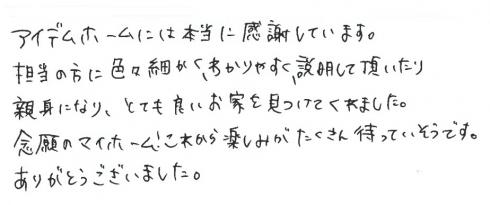 アイデムホームには本当に感謝しています。
担当の方に色々細かく、わかりやすく説明して頂いたり
親身になり、とても良いお家を見つけてくれました。
念願のマイホーム!これから楽しみがたくさん待っていそうです。
ありがとうございました。